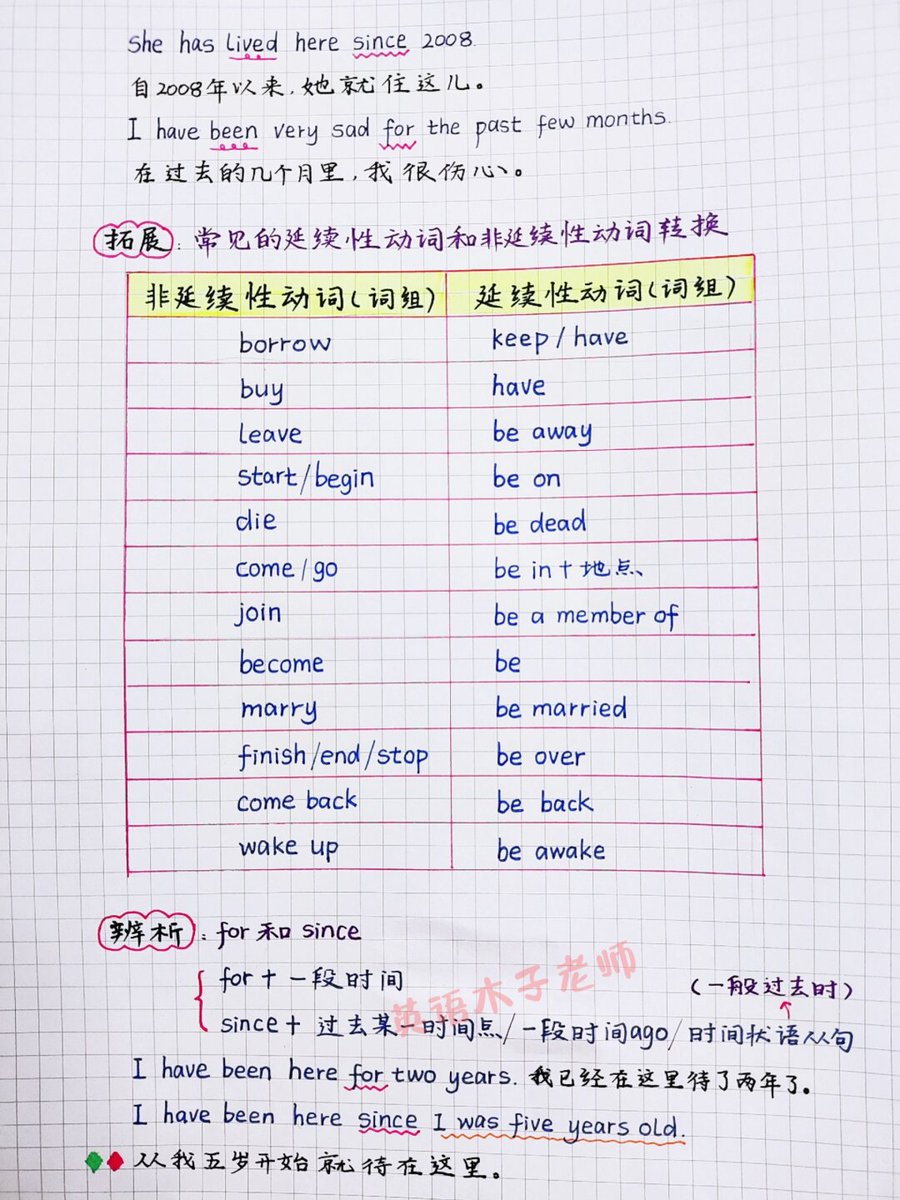 She has lived here since 2008.
自2008年以来,她就住这儿。
I have been very sad for the past few months.
在过去的几个月里,我很伤心。
拓展:常见的延续性动词和非延续性动词转换
非延续性动词(词组) 延续性动词(词组)
borrow keep / have
buy have
leave be away
start/begin be on
die be dead
come/go be in+地点
join be a member of
become be
marry be married
finish/end/stop be over
come back be back
wake up be awake
辨析:for和since
for+一段时间
(一般过去时)
since+过去某一时间点/一段时间ago/时间状语从句
英语木子老师
I have been here for two years. 我已经在这里待了两年了。
I have been here since I was five years old.
从我五岁开始就待在这里。